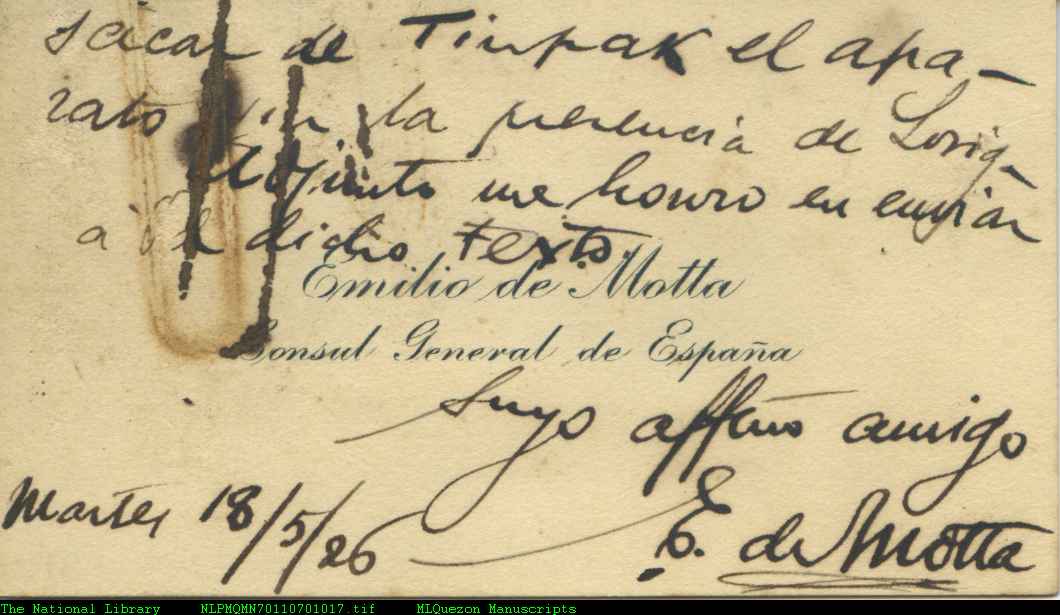 sacar de Tinpak el apa-
rato sin la presencia de Loriga
Adjunto me honro en enviar
a Vd dicho texto.
Emilio de Motta
Consul General de España
Suyo affmo amigo
Martes 18/5/26
E. de Motta
The National Library NLPMQMN70110701017.tif MLQuezon Manuscripts